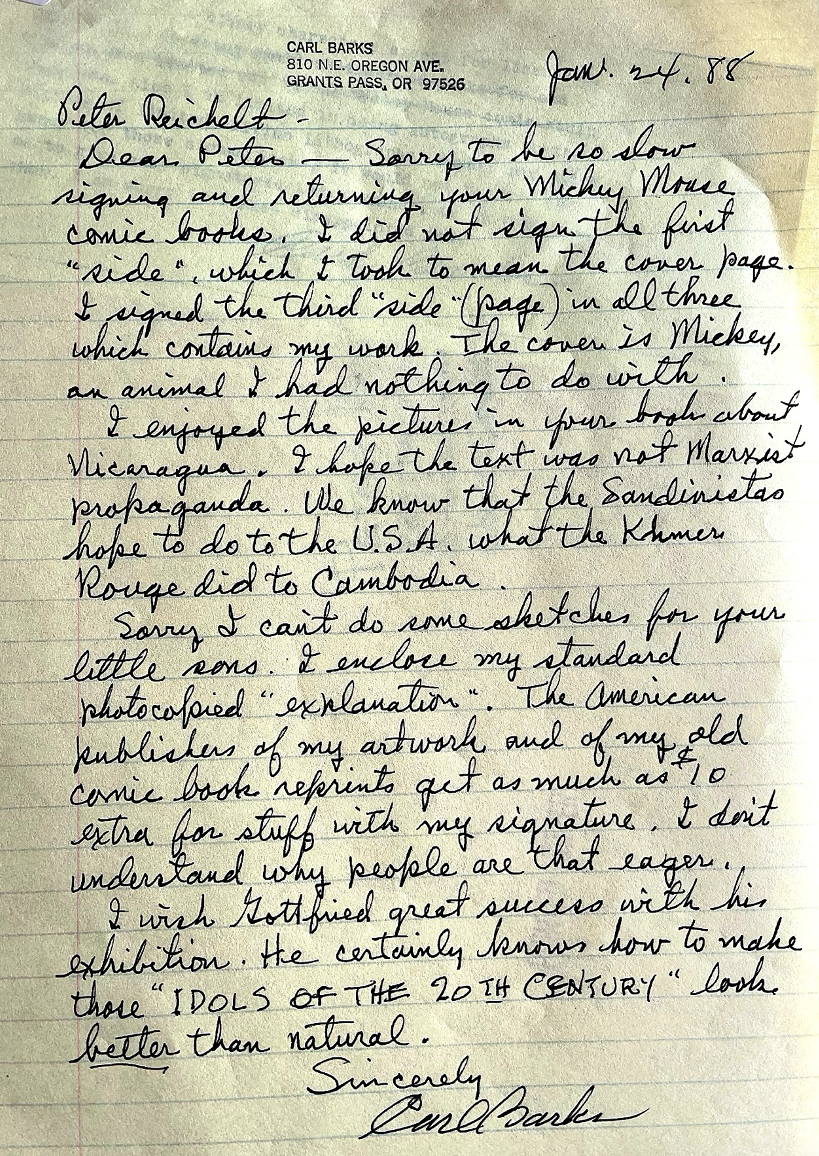 CARL BARKS
810 N.E. OREGON AVE.
GRANTS PASS, OR 97526
Jan. 24. 88
Peter Reichelt -
Dear Peter — Sorry to be so slow
signing and returning your Mickey Mouse
comic books. I did not sign the first
"side", which I took to mean the cover page.
I signed the third "side" (page) in all three
which contains my work. The cover is Mickey,
an animal I had nothing to do with.
I enjoyed the pictures in your book about
Nicaragua. I hope the text was not Marxist
propaganda. We know that the Sandinistas
hope to do to the U.S.A. what the Khmer
Rouge did to Cambodia.
Sorry I can't do some sketches for your
little sons. I enclose my standard
photocopied "explanation". The American
publishers of my artwork and of my old
comic book reprints get as much as $10
extra for stuff with my signature. I don't
understand why people are that eager.
I wish Gottfried great success with his
exhibition. He certainly knows how to make
those "IDOLS OF THE 20TH CENTURY" look
better than natural.
Sincerely
Carl Barks